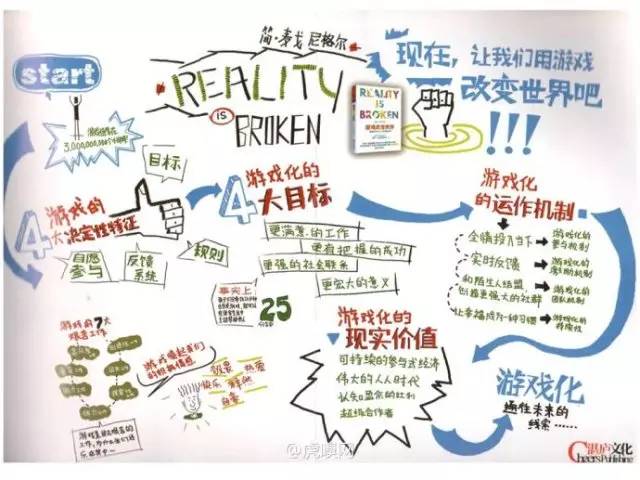 start
简·麦戈尼格尔
REALITY
IS
BROKEN
REALITY
IS
BROKEN
现在, 让我们用游戏
改变世界吧
!!!
3,000,000,000
4
游戏的
大决定性特征
目标
规则
反馈
系统
自愿
参与
4
游戏化的
大目标
更满意的工作
更有把握的成功
更强的社会联系
更宏大的意义
事实上,
25
游戏化
的运作机制
全情投入当下
游戏化的
参与机制
实时反馈
游戏化的
激励机制
和陌生人结盟
创造更强大的社群
游戏化的
团队机制
让幸福成为一种习惯
游戏化的
持续性
游戏化的
现实价值
可持续的参与式经济
伟大的人人时代
认知盈余的红利
超级合作者
游戏化
通往未来的
线索……
游戏的7大
艰苦工作
游戏唤起我们
的积极情感
敬畏
热爱
快乐
自豪
@虎嗅网
湛庐文化
Cheers Publishing